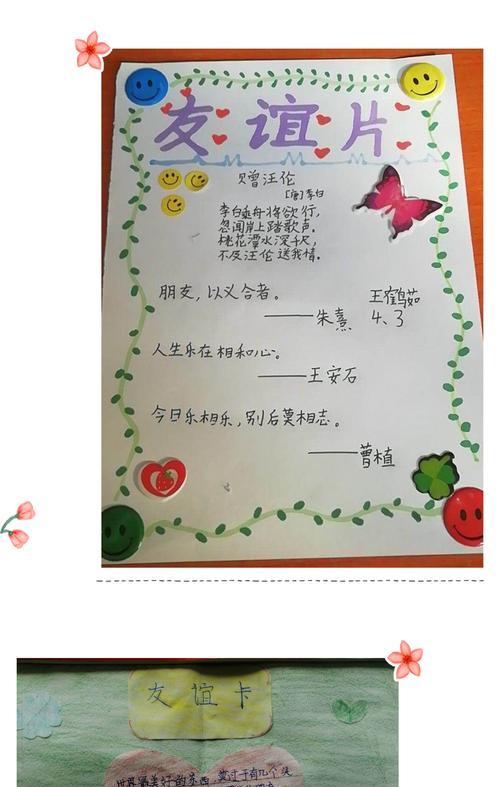 友谊片
赠汪伦
[唐]李白
李白乘舟将欲行,
忽闻岸上踏歌声。
桃花潭水深千尺,
不及汪伦送我情。
朋友,以义合者。
王鹤茹
——朱熹
4、3
人生乐在相和心。
——王安石
今日乐相乐,别后莫相志。
——曹植
友谊卡
世界最美好的东西,莫过于有几个头